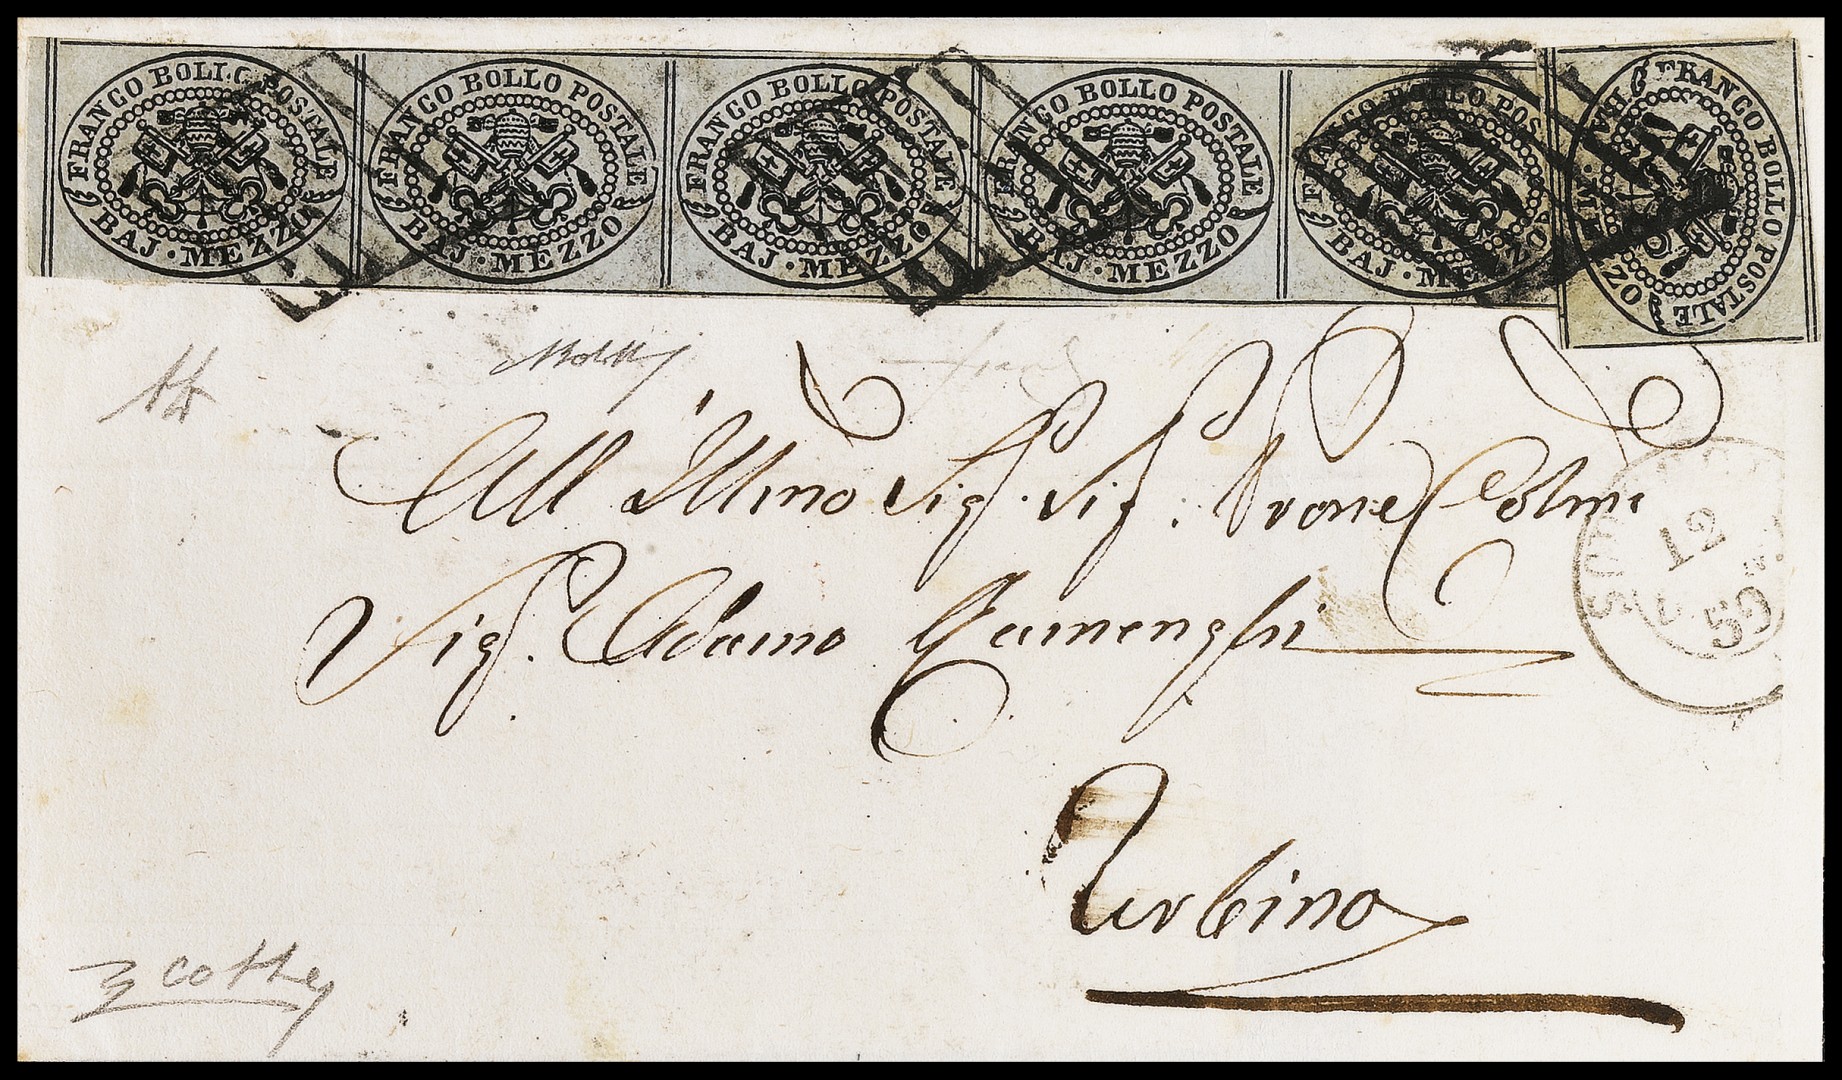 FRANCO BOLLO POSTALE
BAJ · MEZZO
FRANCO BOLLO POSTALE
BAJ · MEZZO
FRANCO BOLLO POSTALE
BAJ · MEZZO
FRANCO BOLLO POSTALE
BAJ · MEZZO
FRANCO BOLLO POS
BAJ · MEZZO
FRANCO BOLLO POSTALE
BAJ ZZO
All' Illmo Sig. Sig. Prone Colmo
12
59
Sig. Adamo
Urbino